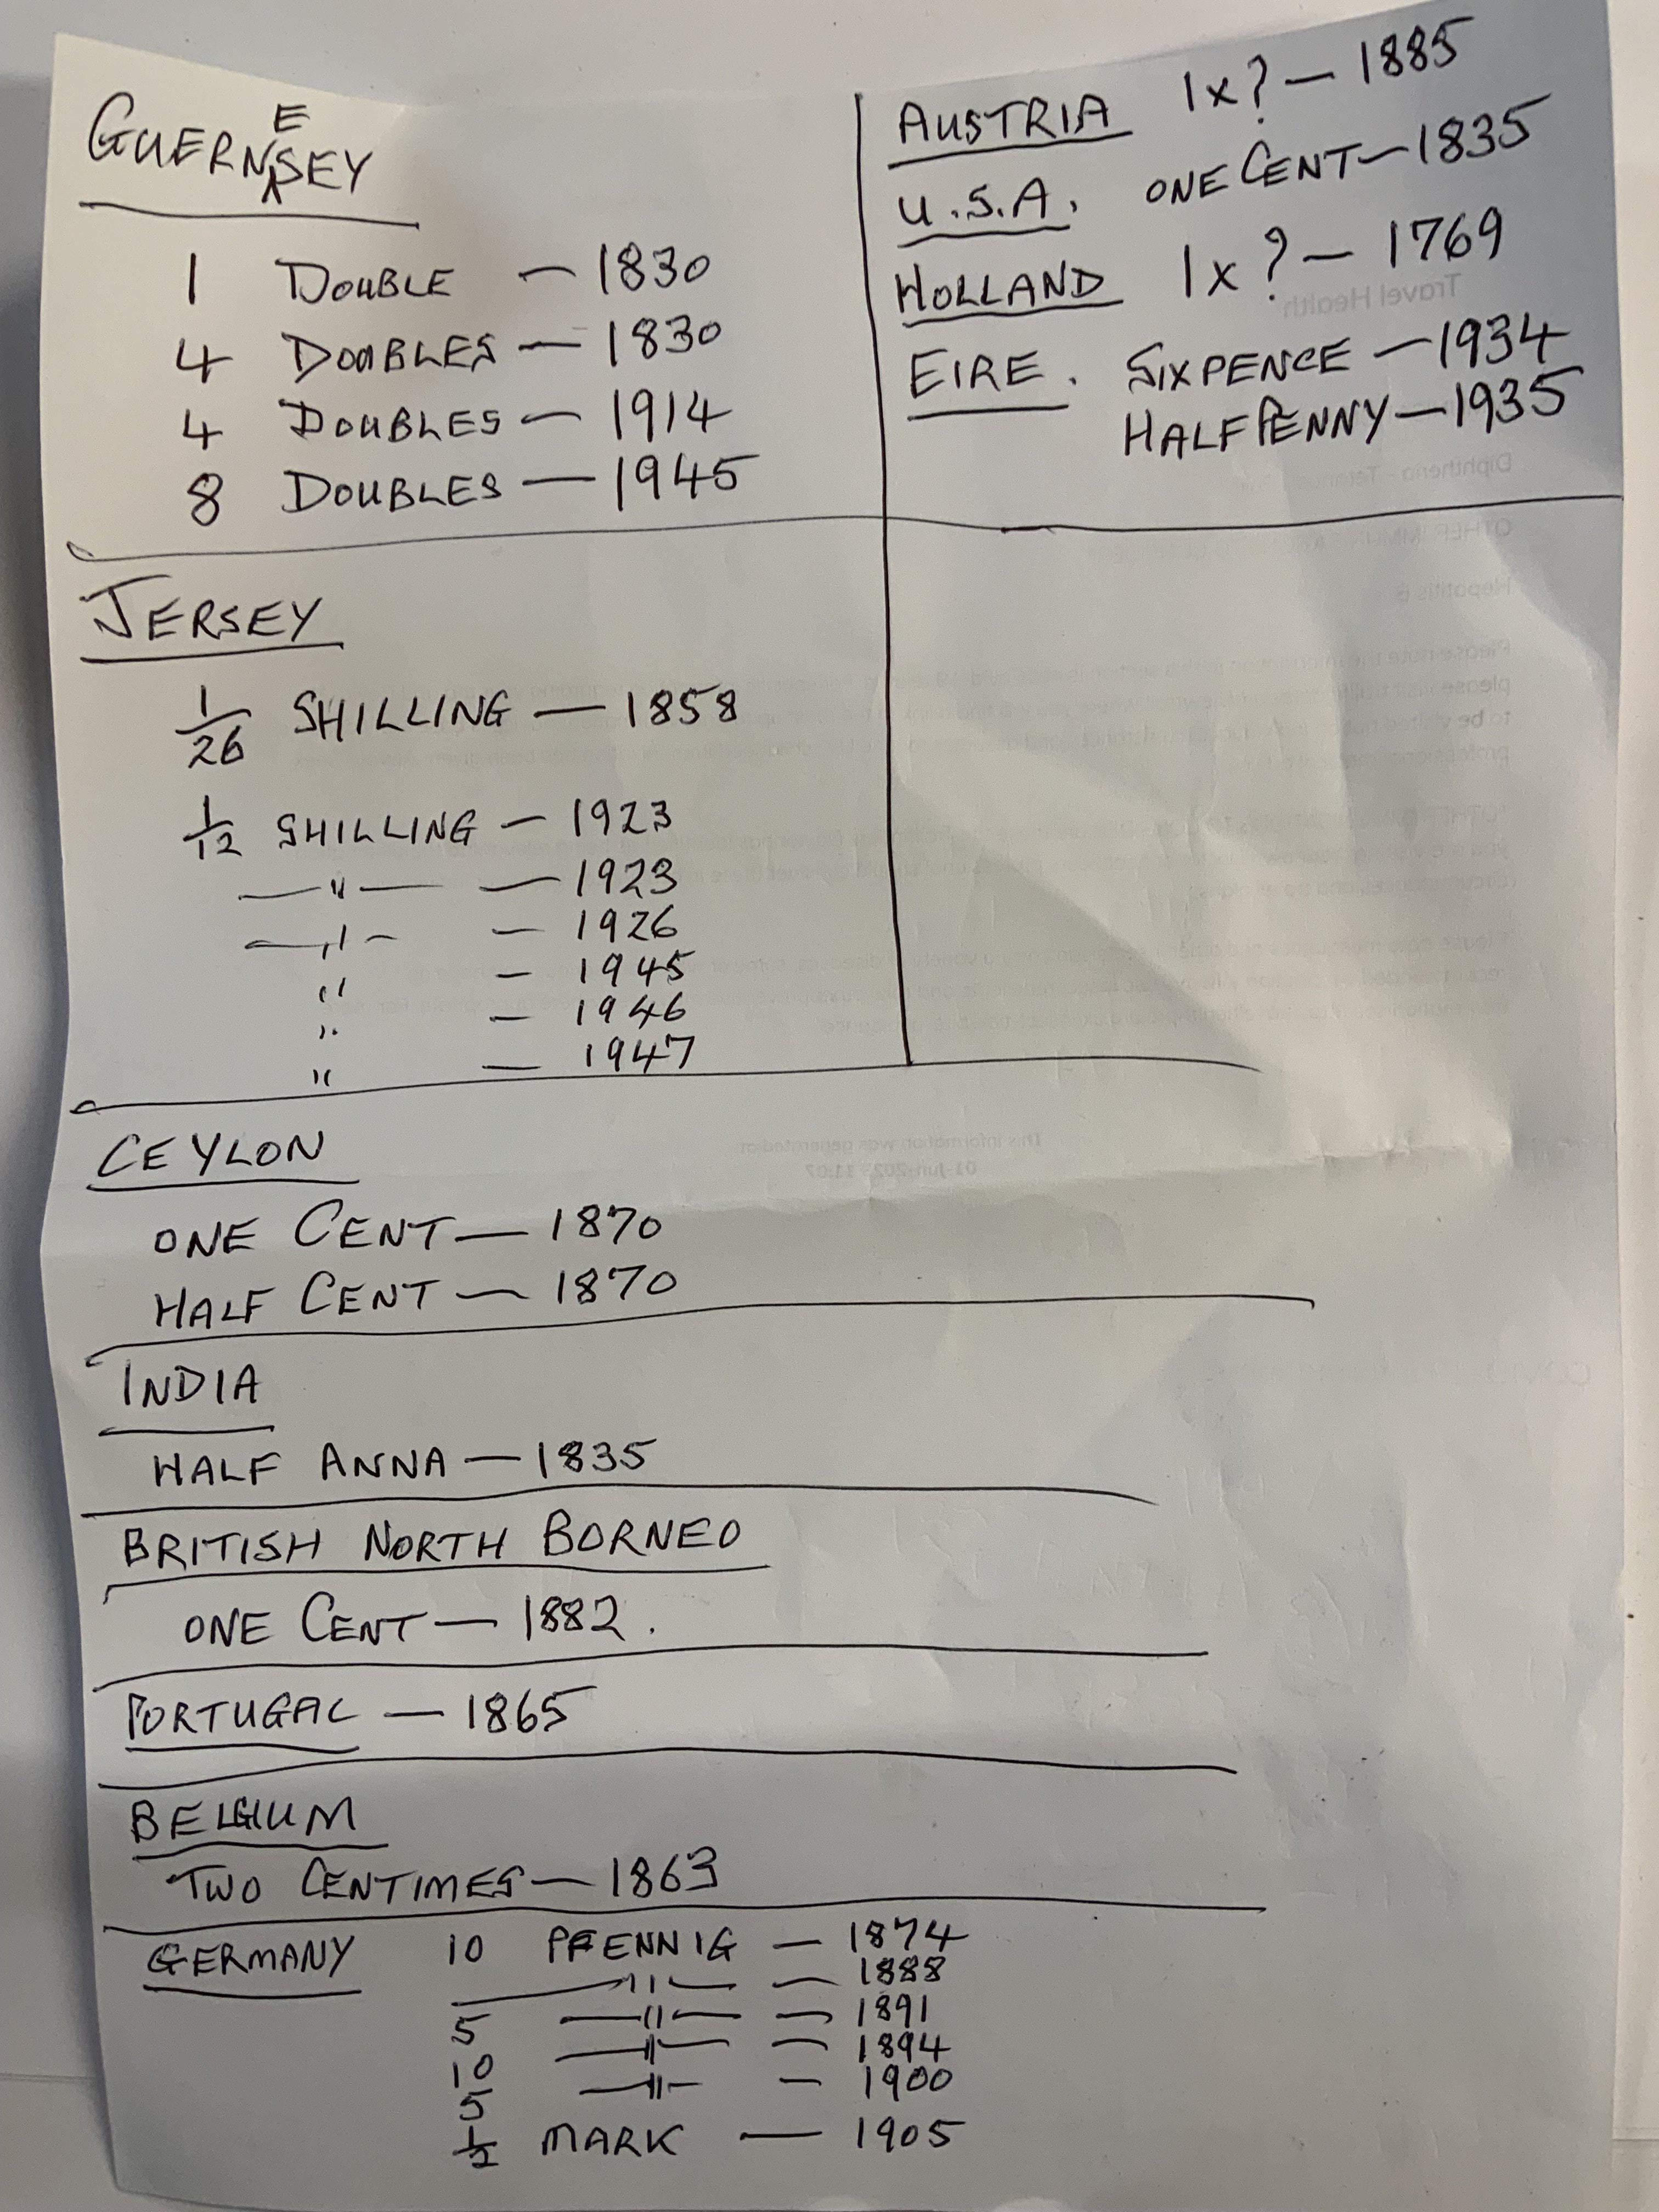 GUERNSEY
E
1 DOUBLE — 1830
4 DOUBLES — 1830
4 DOUBLES — 1914
8 DOUBLES — 1945
AUSTRIA 1x? — 1885
U.S.A. ONE CENT — 1835
HOLLAND 1x? — 1769
EIRE. SIXPENCE — 1934
HALFPENNY — 1935
JERSEY
1/26 SHILLING — 1858
1/12 SHILLING — 1923
— " — — 1923
— " — — 1926
" — 1945
" — 1946
" — 1947
CEYLON
ONE CENT — 1870
HALF CENT — 1870
INDIA
HALF ANNA — 1835
BRITISH NORTH BORNEO
ONE CENT — 1882.
PORTUGAL — 1865
BELGIUM
TWO CENTIMES — 1863
GERMANY 10 PFENNIG — 1874
— " — — 1888
5 — " — — 1891
10 — " — — 1894
5 — " — — 1900
1/2 MARK — 1905
Travel Health
Hepatitis B
This information was generated at: